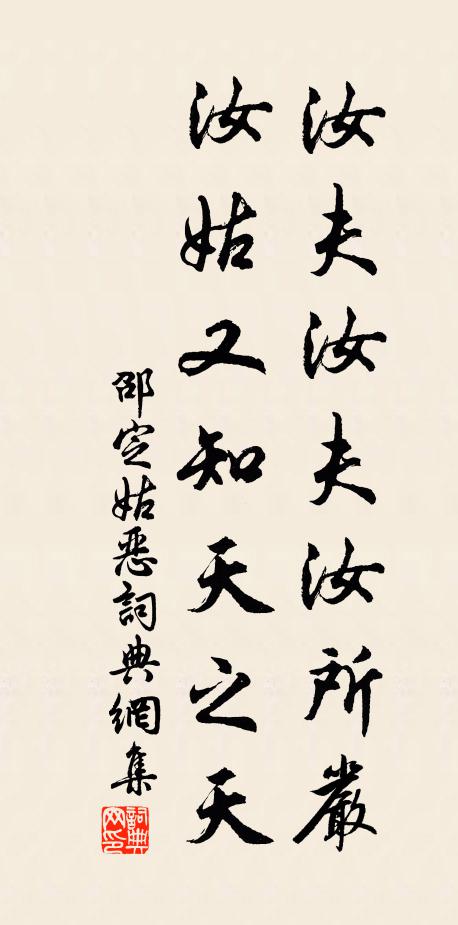 汝夫汝夫汝所嚴
汝姑又知天之天
邵定姑惡詞典網集
詞典網印